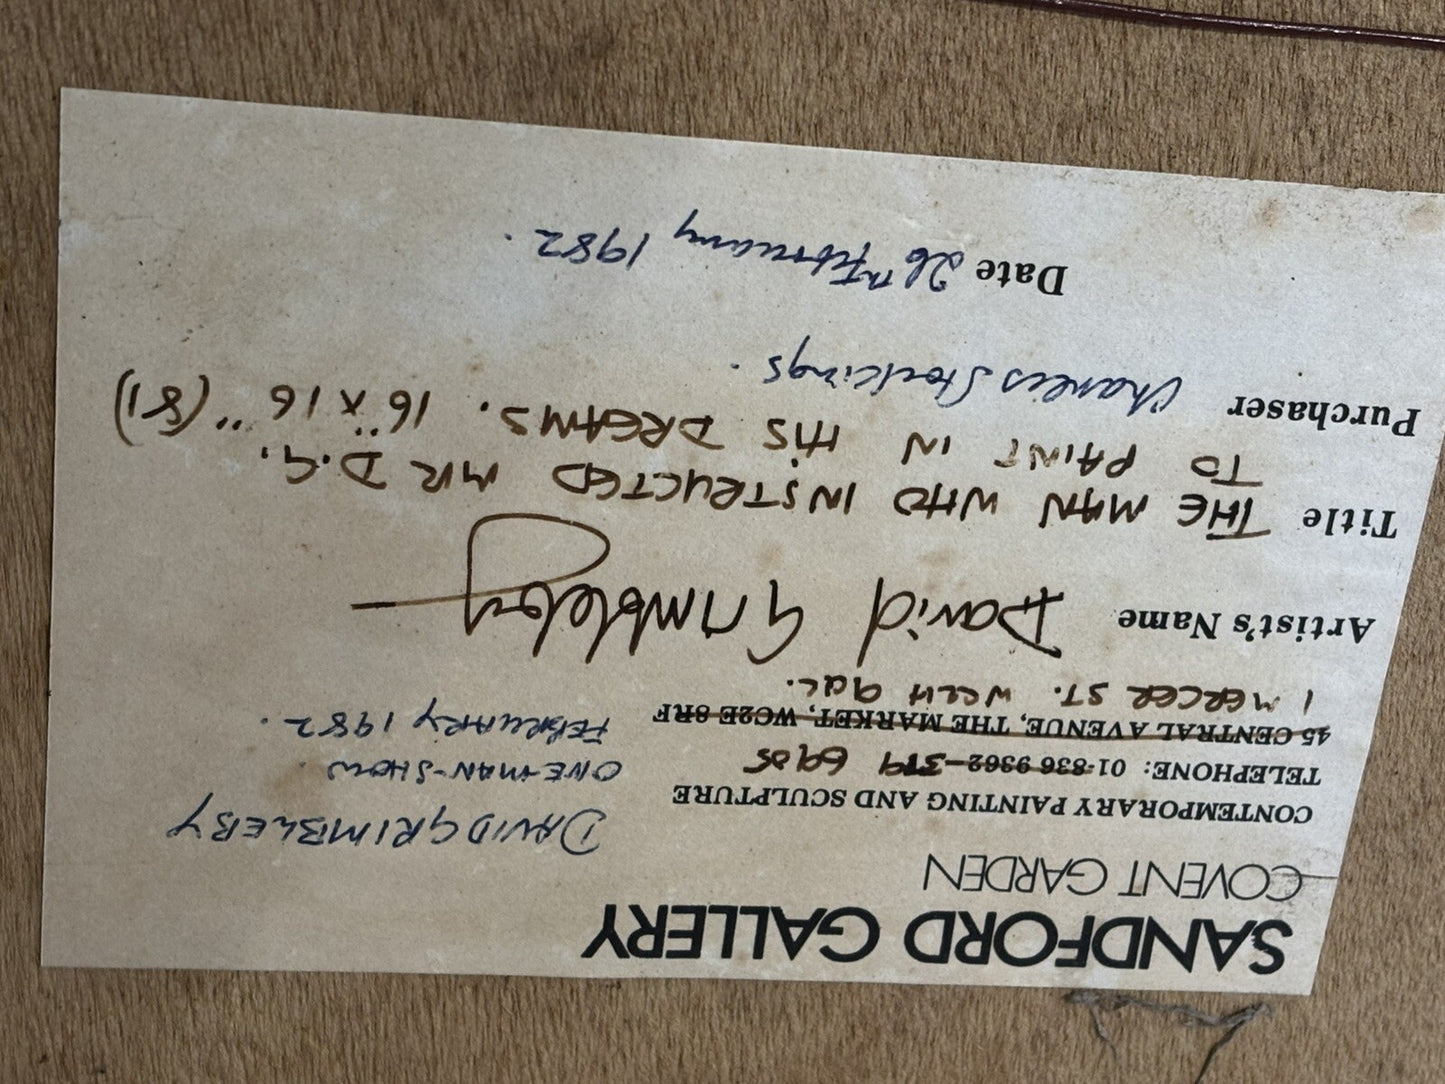 SANDFORD GALLERY
COVENT GARDEN
CONTEMPORARY PAINTING AND SCULPTURE
TELEPHONE: 01-836 9362 379 6905
45 CENTRAL AVENUE, THE MARKET, WC2E 8RF
1 MERCER ST. WC2H 9QL.
DAVID GRIMBLEBY
ONE-MAN-SHOW
FEBRUARY 1982.
Artist's Name David Grimbleby
Title THE MAN WHO INSTRUCTED MR D.G.
TO PAINT IN HIS DREAMS. 16" x 16" (81)
Purchaser Charles Stockings.
Date 26th February 1982.